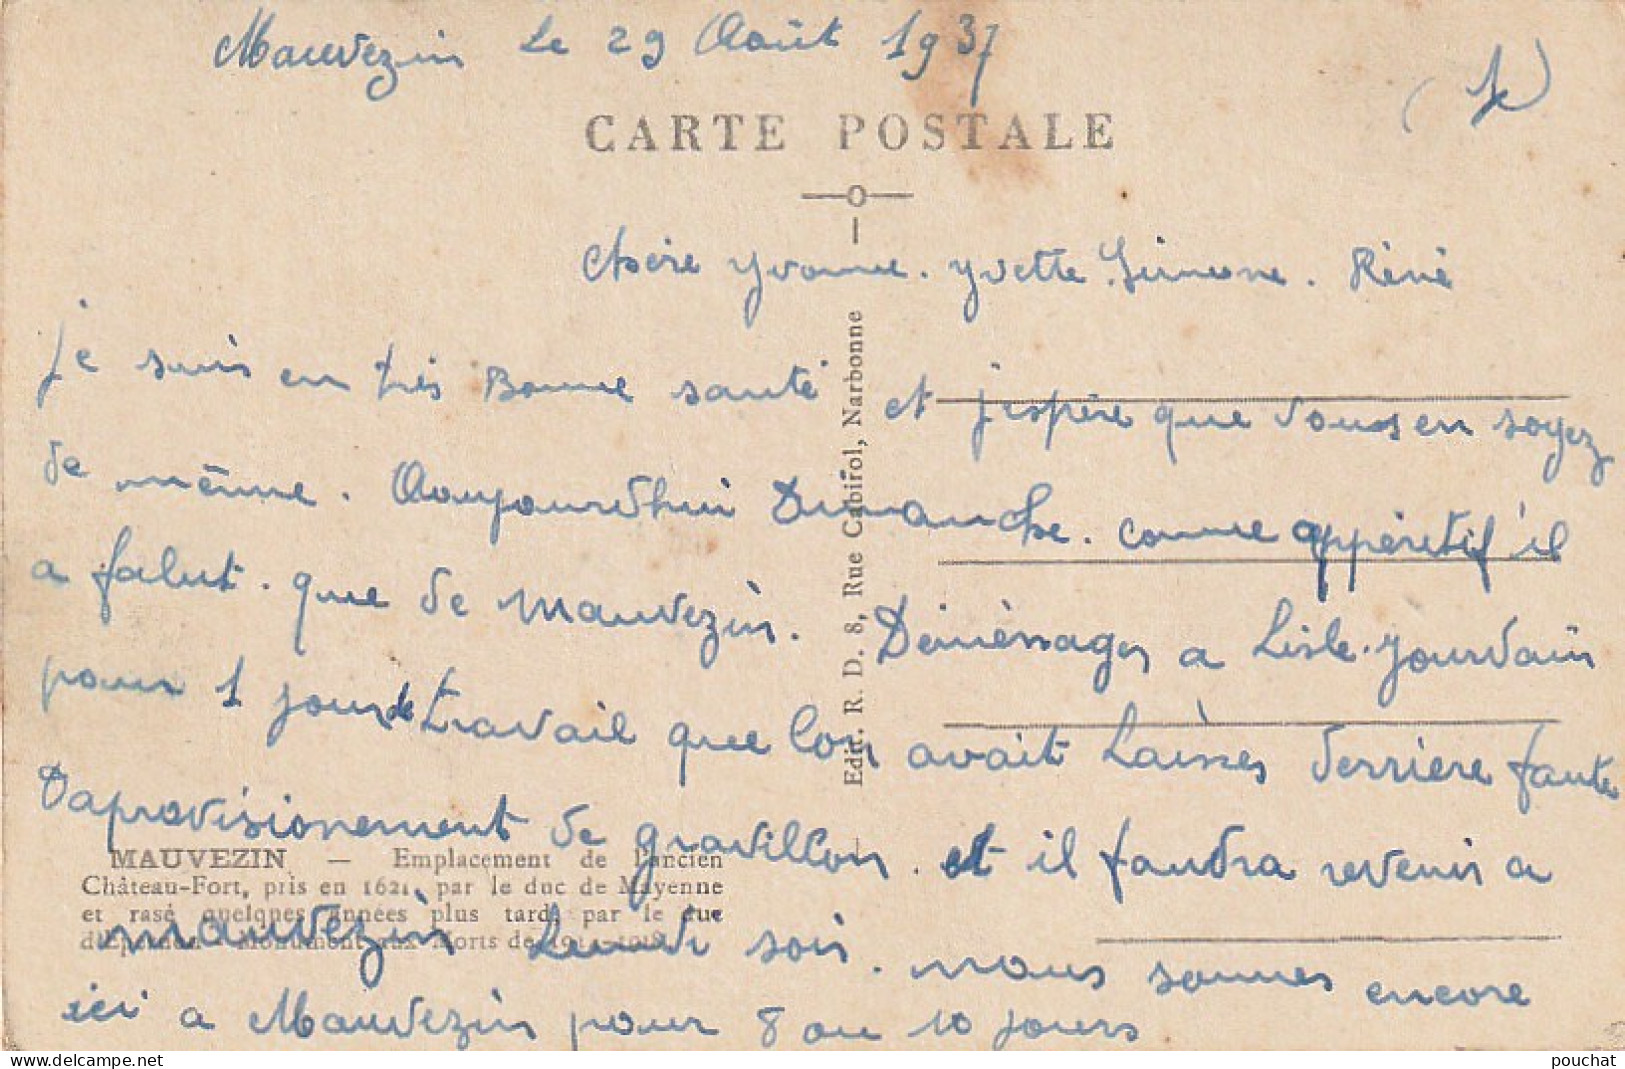 Mauvezin le 29 Août 1937
(1e)
CARTE POSTALE
Chère Yvonne. Yvette. Simone. Réné
Je suis en très Bonne santé et j'espère que vous en soyez
de même. Aaujourd'hui Dimanche. comme appéretif il
a falut. que de Mauvezin. Déménages a Lisle. Jourdain
pour 1 jour de travail que l'on avait Laisses derriere faute
Daprovisionement de gravillon. et il faudra revenir a
mauvezin Lundi soir. nous sommes encore
ici a Mauvezin pour 8 ou 10 jours
Edit. R. D. 8, Rue Cabirol, Narbonne
MAUVEZIN — Emplacement de l'ancien
Château-Fort, pris en 1621, par le duc de Mayenne
et rasé quelques années plus tard, par le duc
d'Epernon - Monument aux Morts de 1914-1918
pouchat